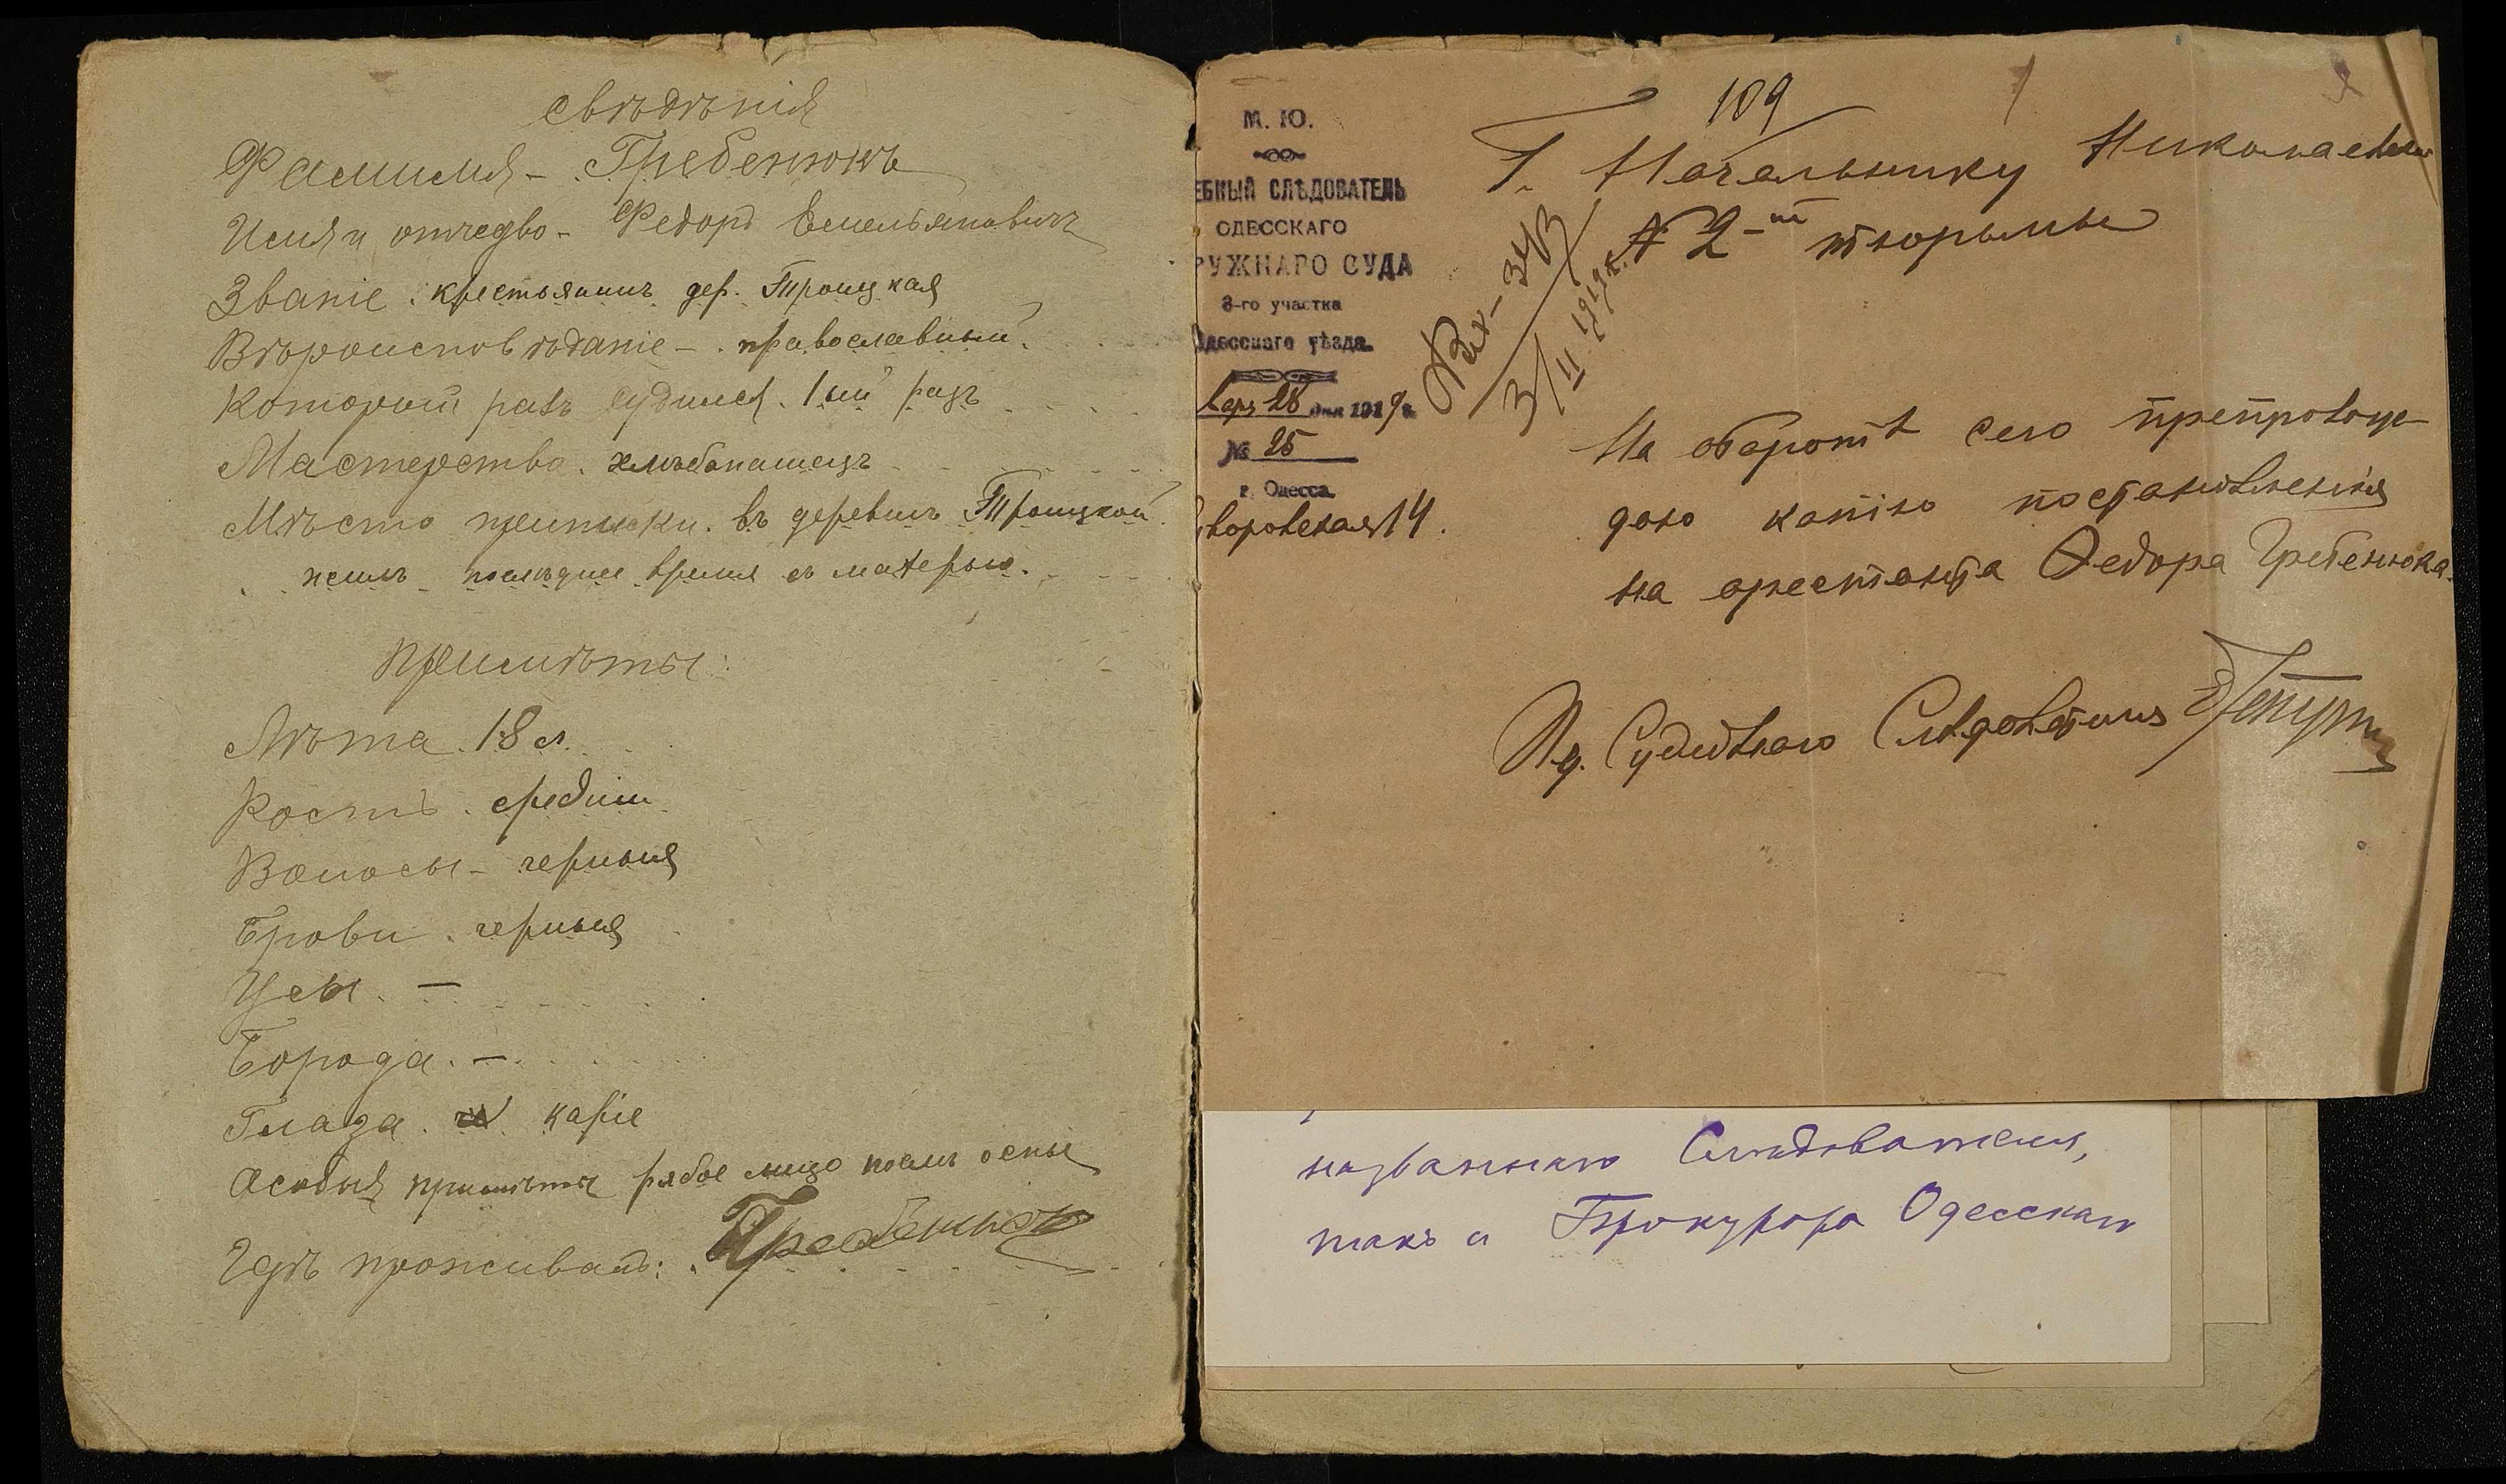 свѣдѣнія
Фамилія - Гребенюкъ
Имя и отчедво - Федоръ Емельяновичъ
Званіе. крестьянинъ дер. Троицкая
Вѣроисповѣданіе - православный
Который разъ судился. 1ый разъ
Мастерство. хлѣбопашецъ
Мѣсто приписки. въ деревнѣ Троицкой
жилъ послѣднее время съ матерью.
примѣты:
Лѣта. 18 л.
Ростъ. средній
Волосы - черныя
Брови. черныя
Усы. —
Борода. —
Глаза. каріе
Особыя примѣты рябое лицо послѣ оспы
Гдѣ проживалъ:
Гребенюкъ
109
М. Ю.
ЕБНЫЙ СЛѢДОВАТЕЛЬ
ОДЕССКАГО
РУЖНАГО СУДА
3-го участка
Одесскаго уѣзда.
28 дня 1919 г.
№ 25
г. Одесса.
воровская 14.
Вх - 343
3/II 1919 г.
Г. Начальнику Николаевской
№ 2-й тюрьмы
На оборотѣ сего препровож-
даю копію постановленія
на арестанта Федора Гребенюка.
И.д. Судебнаго Слѣдователя
названнаго Слѣдователя,
такъ и Прокурора Одесскаго